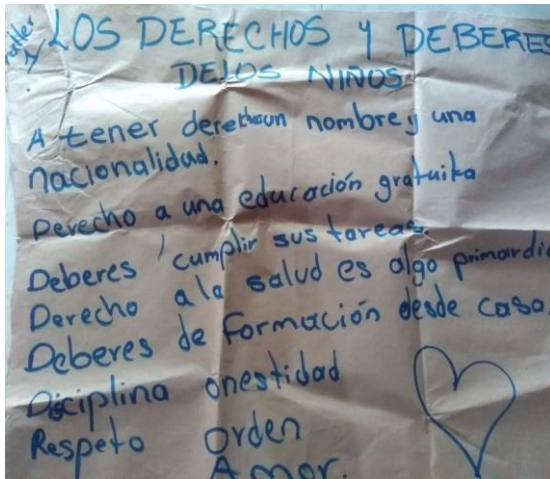 taller 1
LOS DERECHOS Y DEBERES
DE LOS NIÑOS
A tener derecho un nombre y una
nacionalidad.
Derecho a una educación gratuita
Deberes / cumplir sus tareas.
Derecho a la salud es algo primordia
Deberes de Formación desde casa.
Disciplina onestidad
Respeto Orden
Amor.